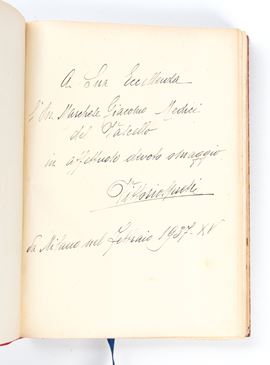 A Sua Eccellenza
l'On. Marchese Giacomo Medici
del Vascello
in affettuoso devoto omaggio
da Milano nel febbraio 1937-XV